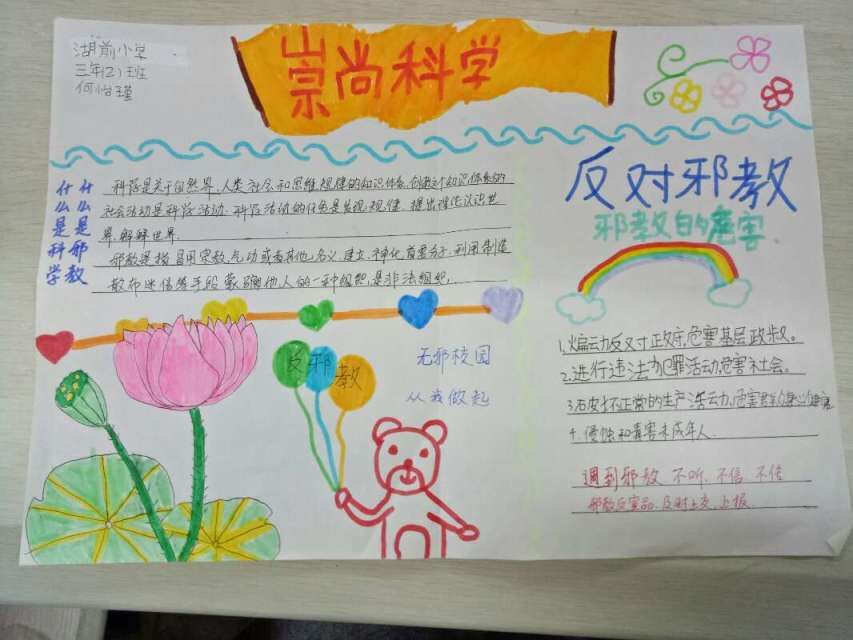 湖前小学
三年(2)班
何怡瑾
崇尚科学
什么是科学
什么是邪教
科学是关于自然界、人类社会和思维规律的知识体系,创造这个知识体系的
社会活动是科学活动.科学活动的任务是发现规律、提出理论认识世
界,解释世界.
邪教是指冒用宗教、气功或者其他名义建立、神化首要分子,利用制造
散布迷信等手段蒙骗他人的一种组织,是非法组织.
反对邪教
邪教的危害
1.煽动反对正政府,危害基层政权。
2.进行违法办犯罪活动危害社会。
3.破坏正常的生产活动,危害群众身心健康
4.侵蚀和毒害未成年人.
遇到邪教 不听、不信、不传
邪教反宣品,及时上交、上报
反邪教
无邪校园
从我做起